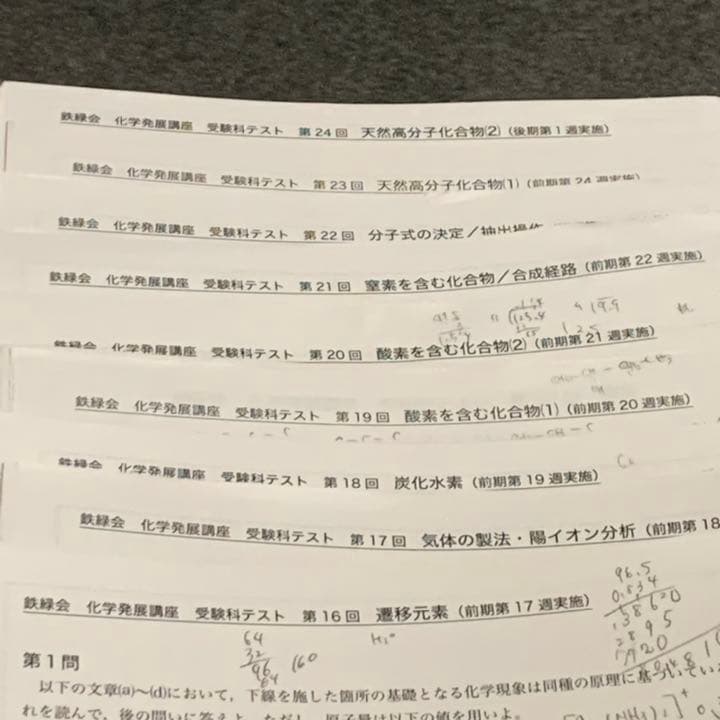 鉄緑会 化学発展講座 受験科テスト 第24回 天然高分子化合物(2)(後期第1週実施)
鉄緑会 化学発展講座 受験科テスト 第23回 天然高分子化合物(1)(前期第24週実施)
鉄緑会 化学発展講座 受験科テスト 第22回 分子式の決定/抽出操作
鉄緑会 化学発展講座 受験科テスト 第21回 窒素を含む化合物/合成経路(前期第22週実施)
鉄緑会 化学発展講座 受験科テスト 第20回 酸素を含む化合物(2)(前期第21週実施)
鉄緑会 化学発展講座 受験科テスト 第19回 酸素を含む化合物(1)(前期第20週実施)
鉄緑会 化学発展講座 受験科テスト 第18回 炭化水素(前期第19週実施)
鉄緑会 化学発展講座 受験科テスト 第17回 気体の製法・陽イオン分析(前期第18
96.5
0.834
鉄緑会 化学発展講座 受験科テスト 第16回 遷移元素(前期第17週実施)
64
32
96
64
160
第1問
以下の文章(a)~(d)において,下線を施した箇所の基礎となる化学現象は同種の原理に基づいている
れを読んで,後の問いに答えよ。ただし,原子量は以下の値を用いよ。